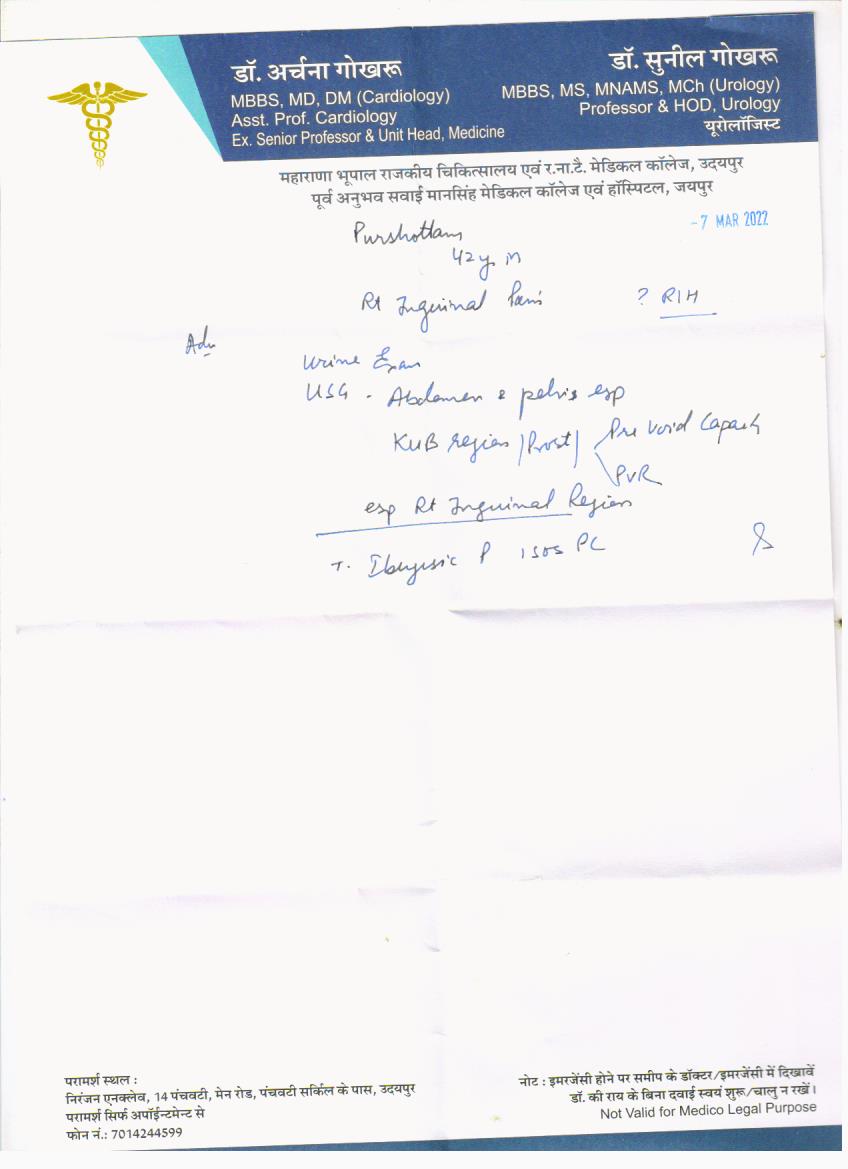 डॉ. अर्चना गोखरू
MBBS, MD, DM (Cardiology)
Asst. Prof. Cardiology
Ex. Senior Professor & Unit Head, Medicine
डॉ. सुनील गोखरू
MBBS, MS, MNAMS, MCh (Urology)
Professor & HOD, Urology
यूरोलॉजिस्ट
महाराणा भूपाल राजकीय चिकित्सालय एवं र.ना.टै. मेडिकल कॉलेज, उदयपुर
पूर्व अनुभव सवाई मानसिंह मेडिकल कॉलेज एवं हॉस्पिटल, जयपुर
-7 MAR 2022
Purshottam
42y M
Rt Inguinal Pain ? RIH
Adv
Urine Exam
USG - Abdomen & pelvis esp
KUB region / Prost / Pre Void Capacity
PVR
esp Rt Inguinal Region
T. Ibugesic P 1 SOS PC
परामर्श स्थल :
निरंजन एनक्लेव, 14 पंचवटी, मेन रोड, पंचवटी सर्किल के पास, उदयपुर
परामर्श सिर्फ अपॉईन्टमेन्ट से
फोन नं.: 7014244599
नोट : इमरजेंसी होने पर समीप के डॉक्टर/इमरजेंसी में दिखावें
डॉ. की राय के बिना दवाई स्वयं शुरू/चालु न रखें।
Not Valid for Medico Legal Purpose